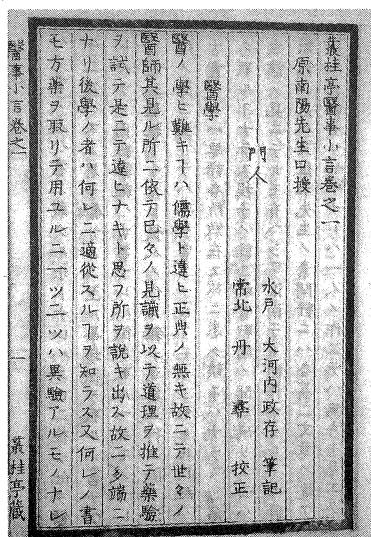 叢桂亭醫事小言卷之一
原南陽先生口授
門人
水戸 大河内政存 筆記
常北 丹 㢘 校正
醫學
醫ノ學ヒ難キヿハ儒學ト違ヒ正典ノ無キ故ニテ世々ノ
醫師其見ル所ニ依テ己々ノ見識ヲ以テ道理ヲ推テ藥驗
ヲ試テ是ニテ違ヒナキト思フ所ヲ説キ出ス故ニ多端ニ
ナリ後學ノ者ハ何レニ適從スルヿヲ知ラス又何レノ書
モ方藥ヲ取リテ用ユルニ一ツ二ツハ異驗アルモノナレ
醫事小言卷之一
一
叢桂亭藏